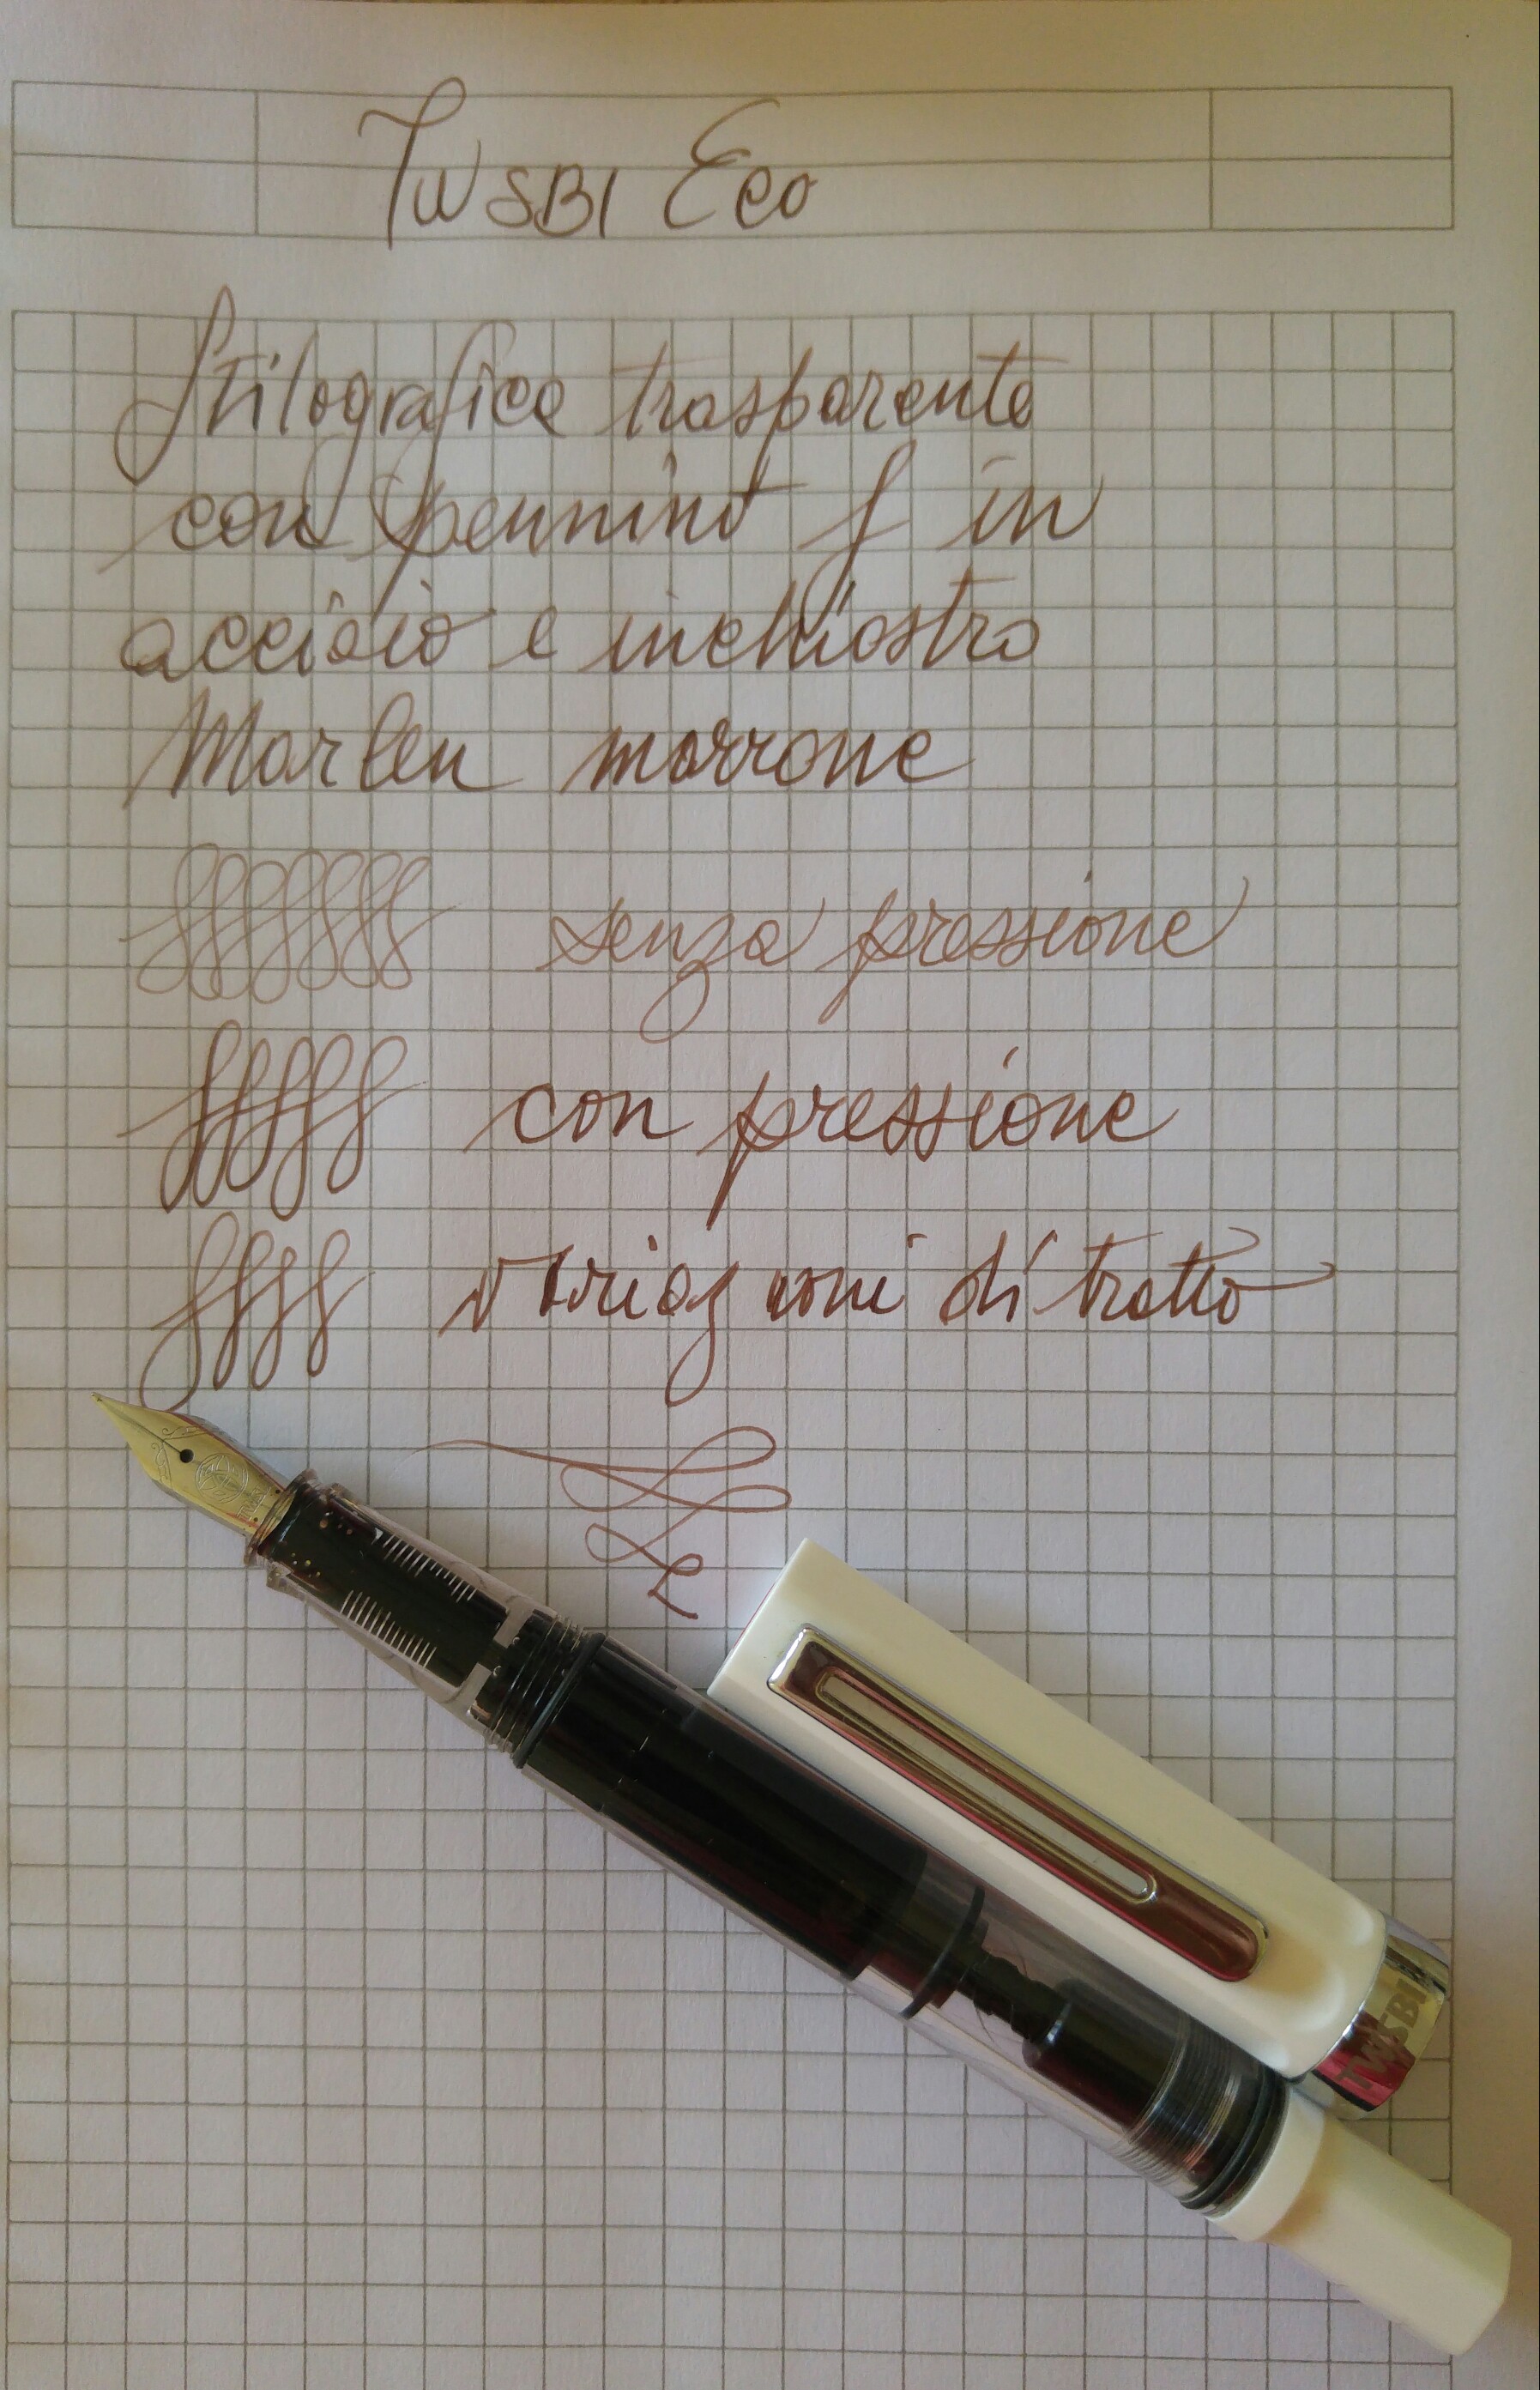 TWSBI Eco
Stilografica trasparente
con pennino f in
acciaio e inchiostro
Marlen marrone
senza pressione
con pressione
variazioni di tratto
TWSBI